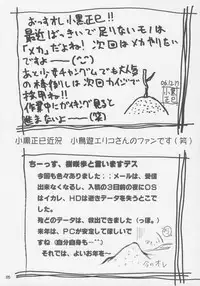 おっすオレ小黒正巳!!
最近ばっきいで足りないモノは
「メカ」だよね! 次回はメカやりたい
ですよー(^-^)
あと少女チャングムでも大人気
の
採用ね!!
作業中にガキツキ見ると
進まないよー(笑)
小黒正巳近況 小鳥遊エリコさんのファンです(笑)
ちーっす、桜咲歩と言いますデス
今回も色々ありました;;メールは、受信
出来なくなるし、入稿の3日前の夜にOS
はイカレ、HDは逝きデータを失うところで
した。
殆どのデータは、救出できました(っぽ。)
来年は、PCが安定してほしいで
すね(自分自身も…^^)
それでは、よいお年を~
今のオレ